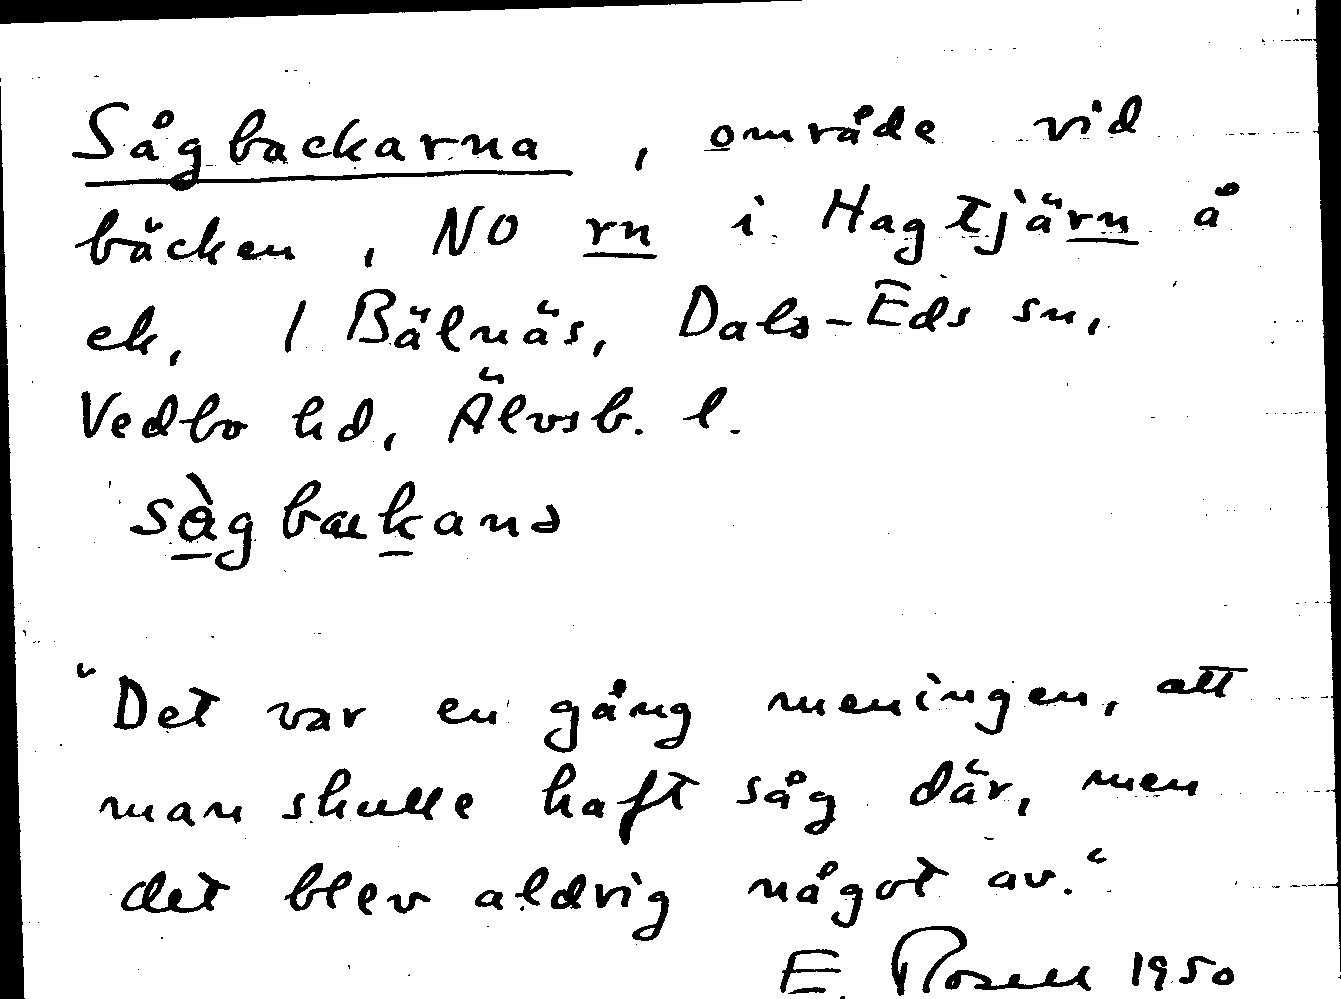 Sågbackarna, område vid
bäcken, NO rn i Hagtjärn å
ek, 1 Bälnäs, Dals-Eds sn,
Vedbo hd, Älvsb. l.
sàgbackanə
"Det var en gång meningen, att
man skulle haft såg där, men
det blev aldrig något av."
E. Rosell 1950